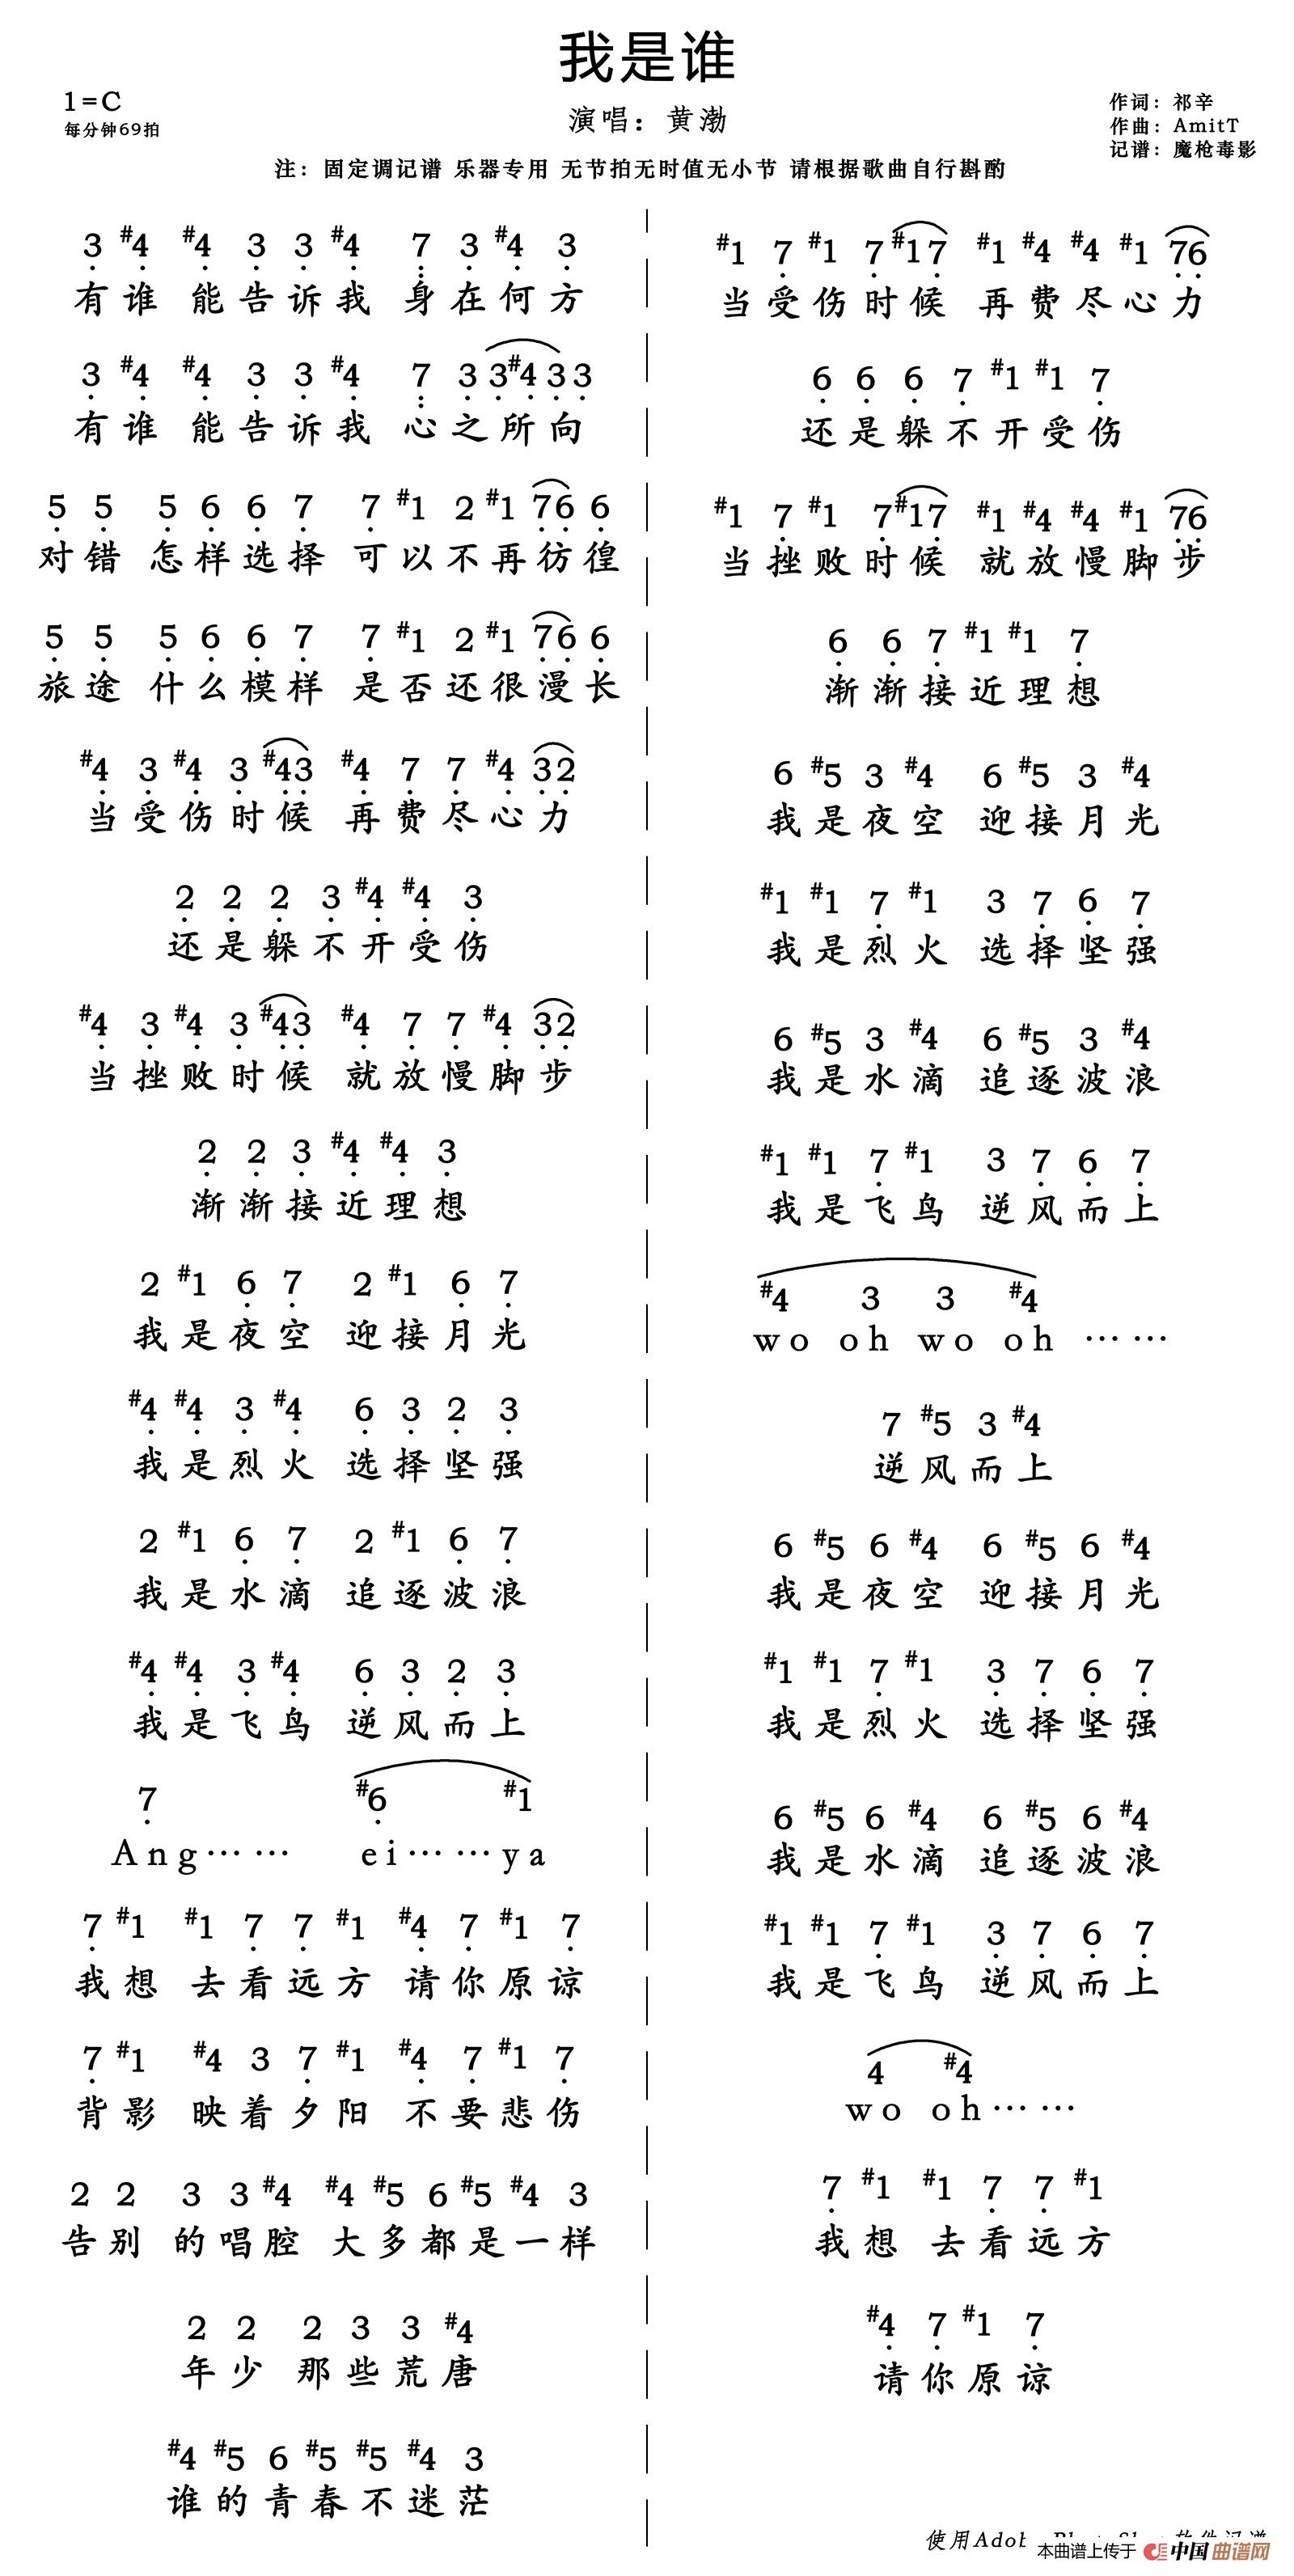 我是谁
1=C
每分钟69拍
演唱：黄渤
作词：祁辛
作曲：AmitT
记谱：魔枪毒影
注：固定调记谱 乐器专用 无节拍无时值无小节 请根据歌曲自行斟酌
3 #4 #4 3 3 #4 7 3 #4 3
有谁 能告诉我 身在何方
3 #4 #4 3 3 #4 7 3 3 #4 3 3
有谁 能告诉我 心之所向
5 5 5 6 6 7 7 #1 2 #1 7 6 6
对错 怎样选择 可以不再彷徨
5 5 5 6 6 7 7 #1 2 #1 7 6 6
旅途 什么模样 是否还很漫长
#4 3 #4 3 #4 3 #4 7 7 #4 3 2
当受伤时候 再费尽心力
2 2 2 3 #4 #4 3
还是躲不开受伤
#4 3 #4 3 #4 3 #4 7 7 #4 3 2
当挫败时候 就放慢脚步
2 2 3 #4 #4 3
渐渐接近理想
2 #1 6 7 2 #1 6 7
我是夜空 迎接月光
#4 #4 3 #4 6 3 2 3
我是烈火 选择坚强
2 #1 6 7 2 #1 6 7
我是水滴 追逐波浪
#4 #4 3 #4 6 3 2 3
我是飞鸟 逆风而上
7 #6 #1
Ang…… ei……ya
7 #1 #1 7 7 #1 #4 7 #1 7
我想 去看远方 请你原谅
7 #1 #4 3 7 #1 #4 7 #1 7
背影 映着夕阳 不要悲伤
2 2 3 3 #4 #4 #5 6 #5 #4 3
告别 的唱腔 大多都是一样
2 2 2 3 3 #4
年少 那些荒唐
#4 #5 6 #5 #5 #4 3
谁的青春不迷茫
#1 7 #1 7 #1 7 #1 #4 #4 #1 7 6
当受伤时候 再费尽心力
6 6 6 7 #1 #1 7
还是躲不开受伤
#1 7 #1 7 #1 7 #1 #4 #4 #1 7 6
当挫败时候 就放慢脚步
6 6 7 #1 #1 7
渐渐接近理想
6 #5 3 #4 6 #5 3 #4
我是夜空 迎接月光
#1 #1 7 #1 3 7 6 7
我是烈火 选择坚强
6 #5 3 #4 6 #5 3 #4
我是水滴 追逐波浪
#1 #1 7 #1 3 7 6 7
我是飞鸟 逆风而上
#4 3 3 #4
wo oh wo oh ……
7 #5 3 #4
逆风而上
6 #5 6 #4 6 #5 6 #4
我是夜空 迎接月光
#1 #1 7 #1 3 7 6 7
我是烈火 选择坚强
6 #5 6 #4 6 #5 6 #4
我是水滴 追逐波浪
#1 #1 7 #1 3 7 6 7
我是飞鸟 逆风而上
4 #4
wo oh……
7 #1 #1 7 7 #1
我想 去看远方
#4 7 #1 7
请你原谅
使用
本曲谱上传于 中国曲谱网